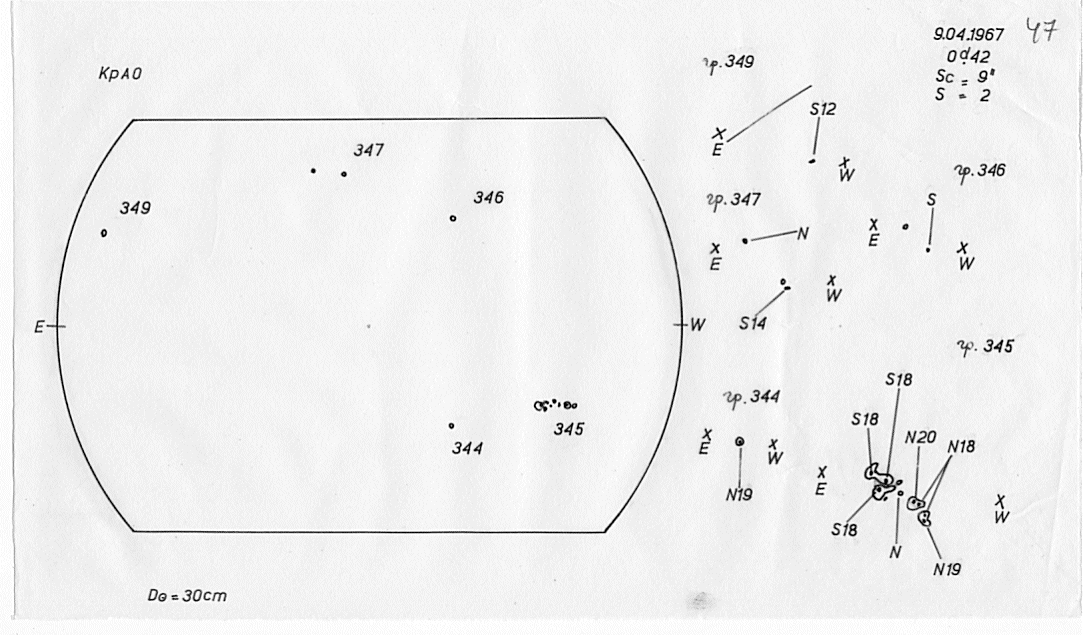 47
9.04.1967
0ᵈ.42
Sc = 9"
S = 2
КрАО
гр.349
S12
X
E
X
W
347
349
346
гр.346
S
X
E
X
W
гр.347
N
X
E
X
W
S14
E
W
гр.345
S18
S18
N20
N18
X
E
X
W
S18
N
N19
гр.344
X
E
X
W
N19
345
344
D⊙ = 30cm